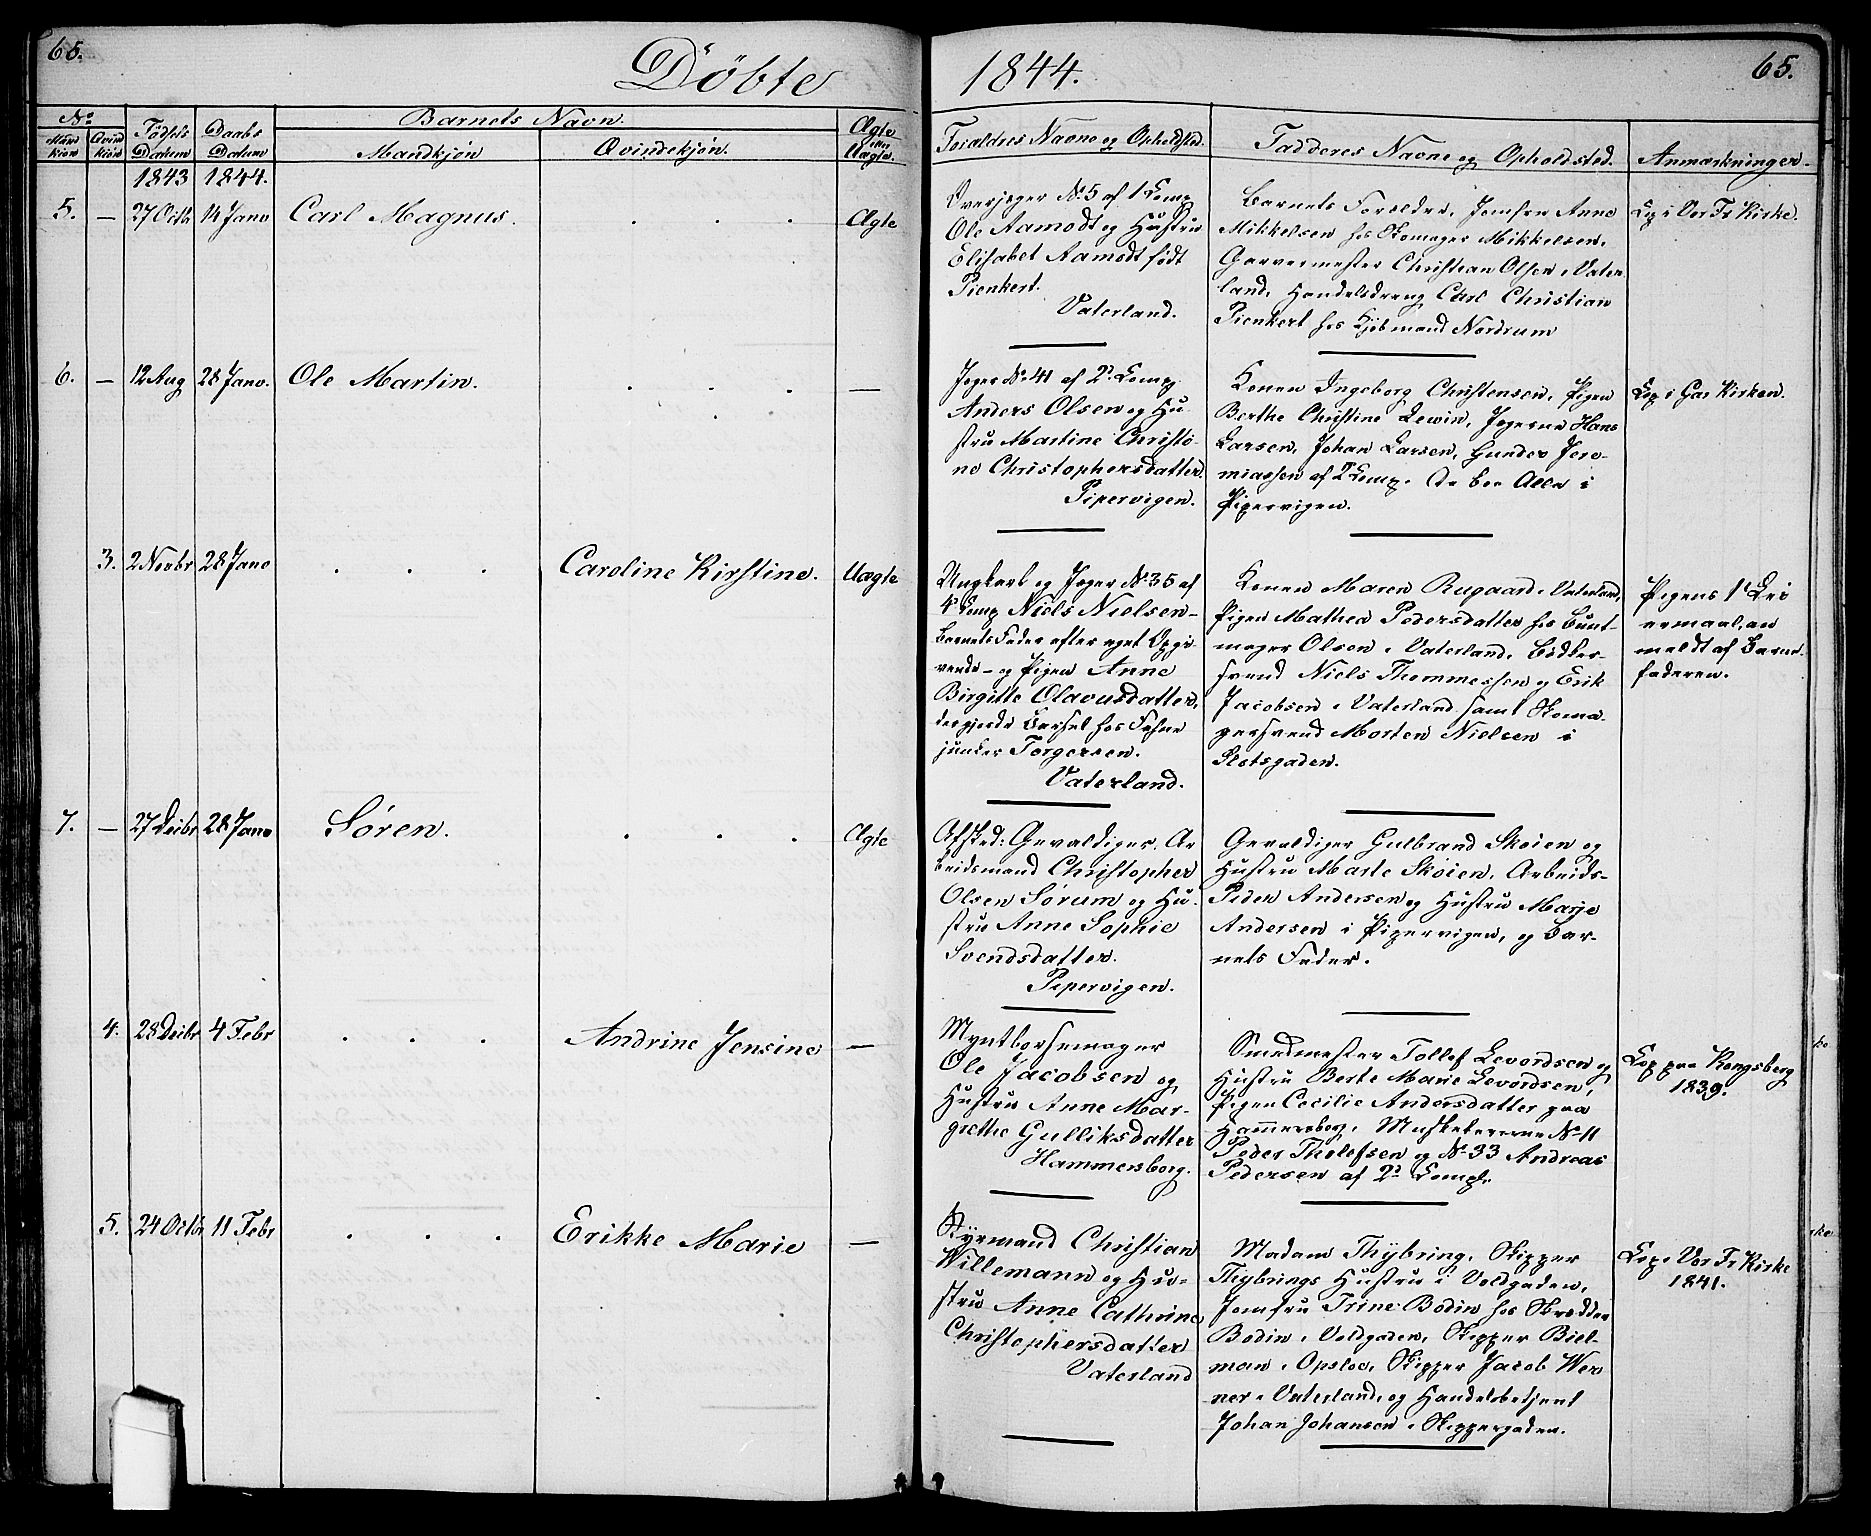 65.
Döbte
1844.
65.
No
Mand
kiön
Qvind
kiön
Födsels
Datum
Daabs
Datum
Barnets Navn.
Mandkjön
Qvindekjön.
Ægte
Uægte.
Forældres Navne og Opholdsted.
Fadderes Navne og Opholdsted.
Anmærkninger.
1843
1844.
5. — 27 Octb 14 Janv Carl Magnus. Ægte
Overjeger No 5 af 1 Comp
Ole Aamodt og Hustru
Elisabet Aamodt födt
Pienkert.
Vaterland.
Barnets Forældre, Jomfru Anne
Mikkelsen hos Skomager Mikkelsen,
Garvermester Christian Olsen i Vater
land, Handelsdreng Carl Christian
Pienkert hos Kjöbmand Nordrum
Cop i Vor Fr Kirke.
6. — 12 Aug 28 Janv. Ole Martin. —
Jeger No 41 af 2d Comp
Anders Olsen og Hu-
stru Martine Christö-
ne Christophersdatter.
Pipervigen.
Konen Ingeborg Christensen, Pigen
Berthe Christine Lewin, Jegerne Hans
Larsen, Johan Larsen, Gunder Jere-
miassen af 2 Comp. De boe Alle i
Pipervigen.
Cop i Gar Kirken.
3. 2 Novbr 28 Janv Caroline Kirstine. Uægte
Ungkarl og Jeger No 35 af
4 Comp Niels Nielsen —
Barnets Fader efter eget Opgi-
vende — og Pigen Anne
Birgitte Olavusdatter,
der gjorde Barsel hos Fahne
junker Torgersen.
Vaterland.
Konen Maren Rugaard i Vaterland,
Pigen Mathea Pedersdatter hos Bunt-
mager Olsen i Vaterland, Bödker-
svend Niels Thommessen og Erik
Jacobsen i Vaterland samt Skoma-
gersvend Morten Nielsen i
Slotsgaden.
Pigens 1 Lei
ermaal, an
meldt af Barne-
faderen.
7. — 27 Decbr 28 Janv Sören. Ægte
Afsked: Gevaldiger. Ar
beidsmand Christopher
Olsen Sörum og Hu-
stru Anne Sophie
Svendsdatter.
Pipervigen.
Gevaldiger Gulbrand Skoien og
Hustru Marte Skoien, Arbeids-
Peder Andersen og Hustru Marje
Andersen i Pipervigen, og Bar-
nets Fader.
4. 28 Decbr 4 Febr Andrine Jensine —
Myntborsemager
Ole Jacobsen og
Hustru Anne Mar-
grethe Gulliksdatter
Hammersborg.
Smedmester Tollef Levordsen og
Hustru Berte Marie Levordsen,
Pigen Cecilie Andersdatter paa
Hammersborg, Musketererne No 11
Peder Tholefsen og No 33 Andreas
Pedersen af 2d Comp.
Cop paa Kongsberg
1839.
5. 24 Octbr 11 Febr Erikke Marie —
Styrmand Christian
Willemann og Hu-
stru Anne Cathrine
Christophersdatter
Vaterland
Madam Thybring, Skipper
Thybrings Hustru i Voldgaden,
Jomfru Trine Bodin hos Skrædder
Bodin i Voldgaden, Skipper Biel-
man i Opsloe, Skipper Jacob Wer
ner i Vaterland, og Handelsbetjent
Johan Johansen i Skippergaden.
Cop i Vor Fr Kirke
1841.